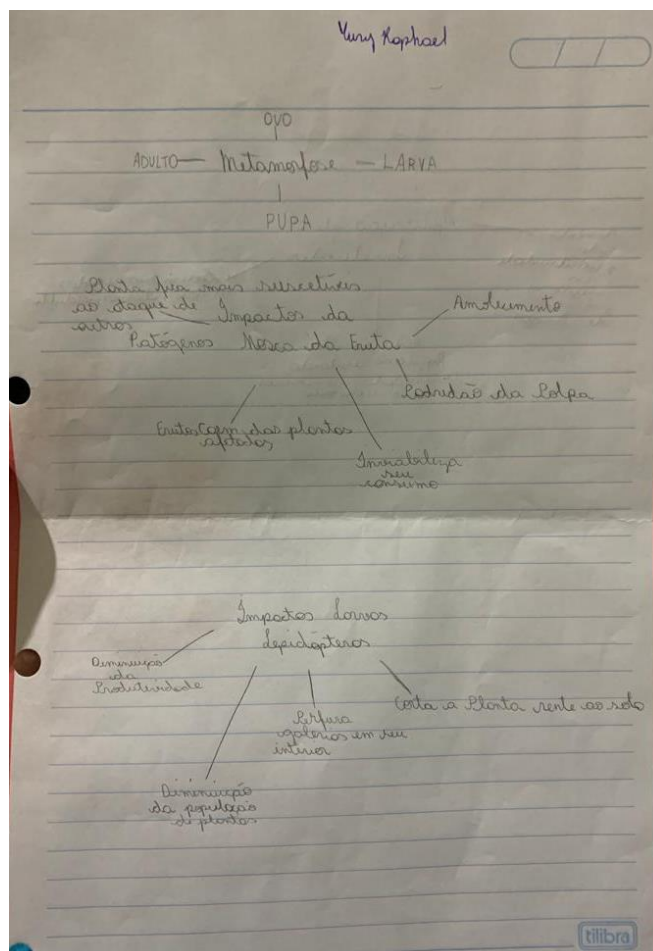 Yury Raphael
OVO
ADULTO — Metamorfose — LARVA
PUPA
Planta fica mais suscetíveis
ao ataque de
outros
Patógenos
Impactos da
Mosca da Fruta
Amolecimento
Podridão da Polpa
Frutos Caem das plantas
afetadas
Inviabiliza
seu
consumo
Impactos Larvas
Lepidópteros
Diminuição
da
Produtividade
Corta a Planta rente ao solo
Perfura
galerias em seu
interior
Diminuição
da população
de plantas
tilibra